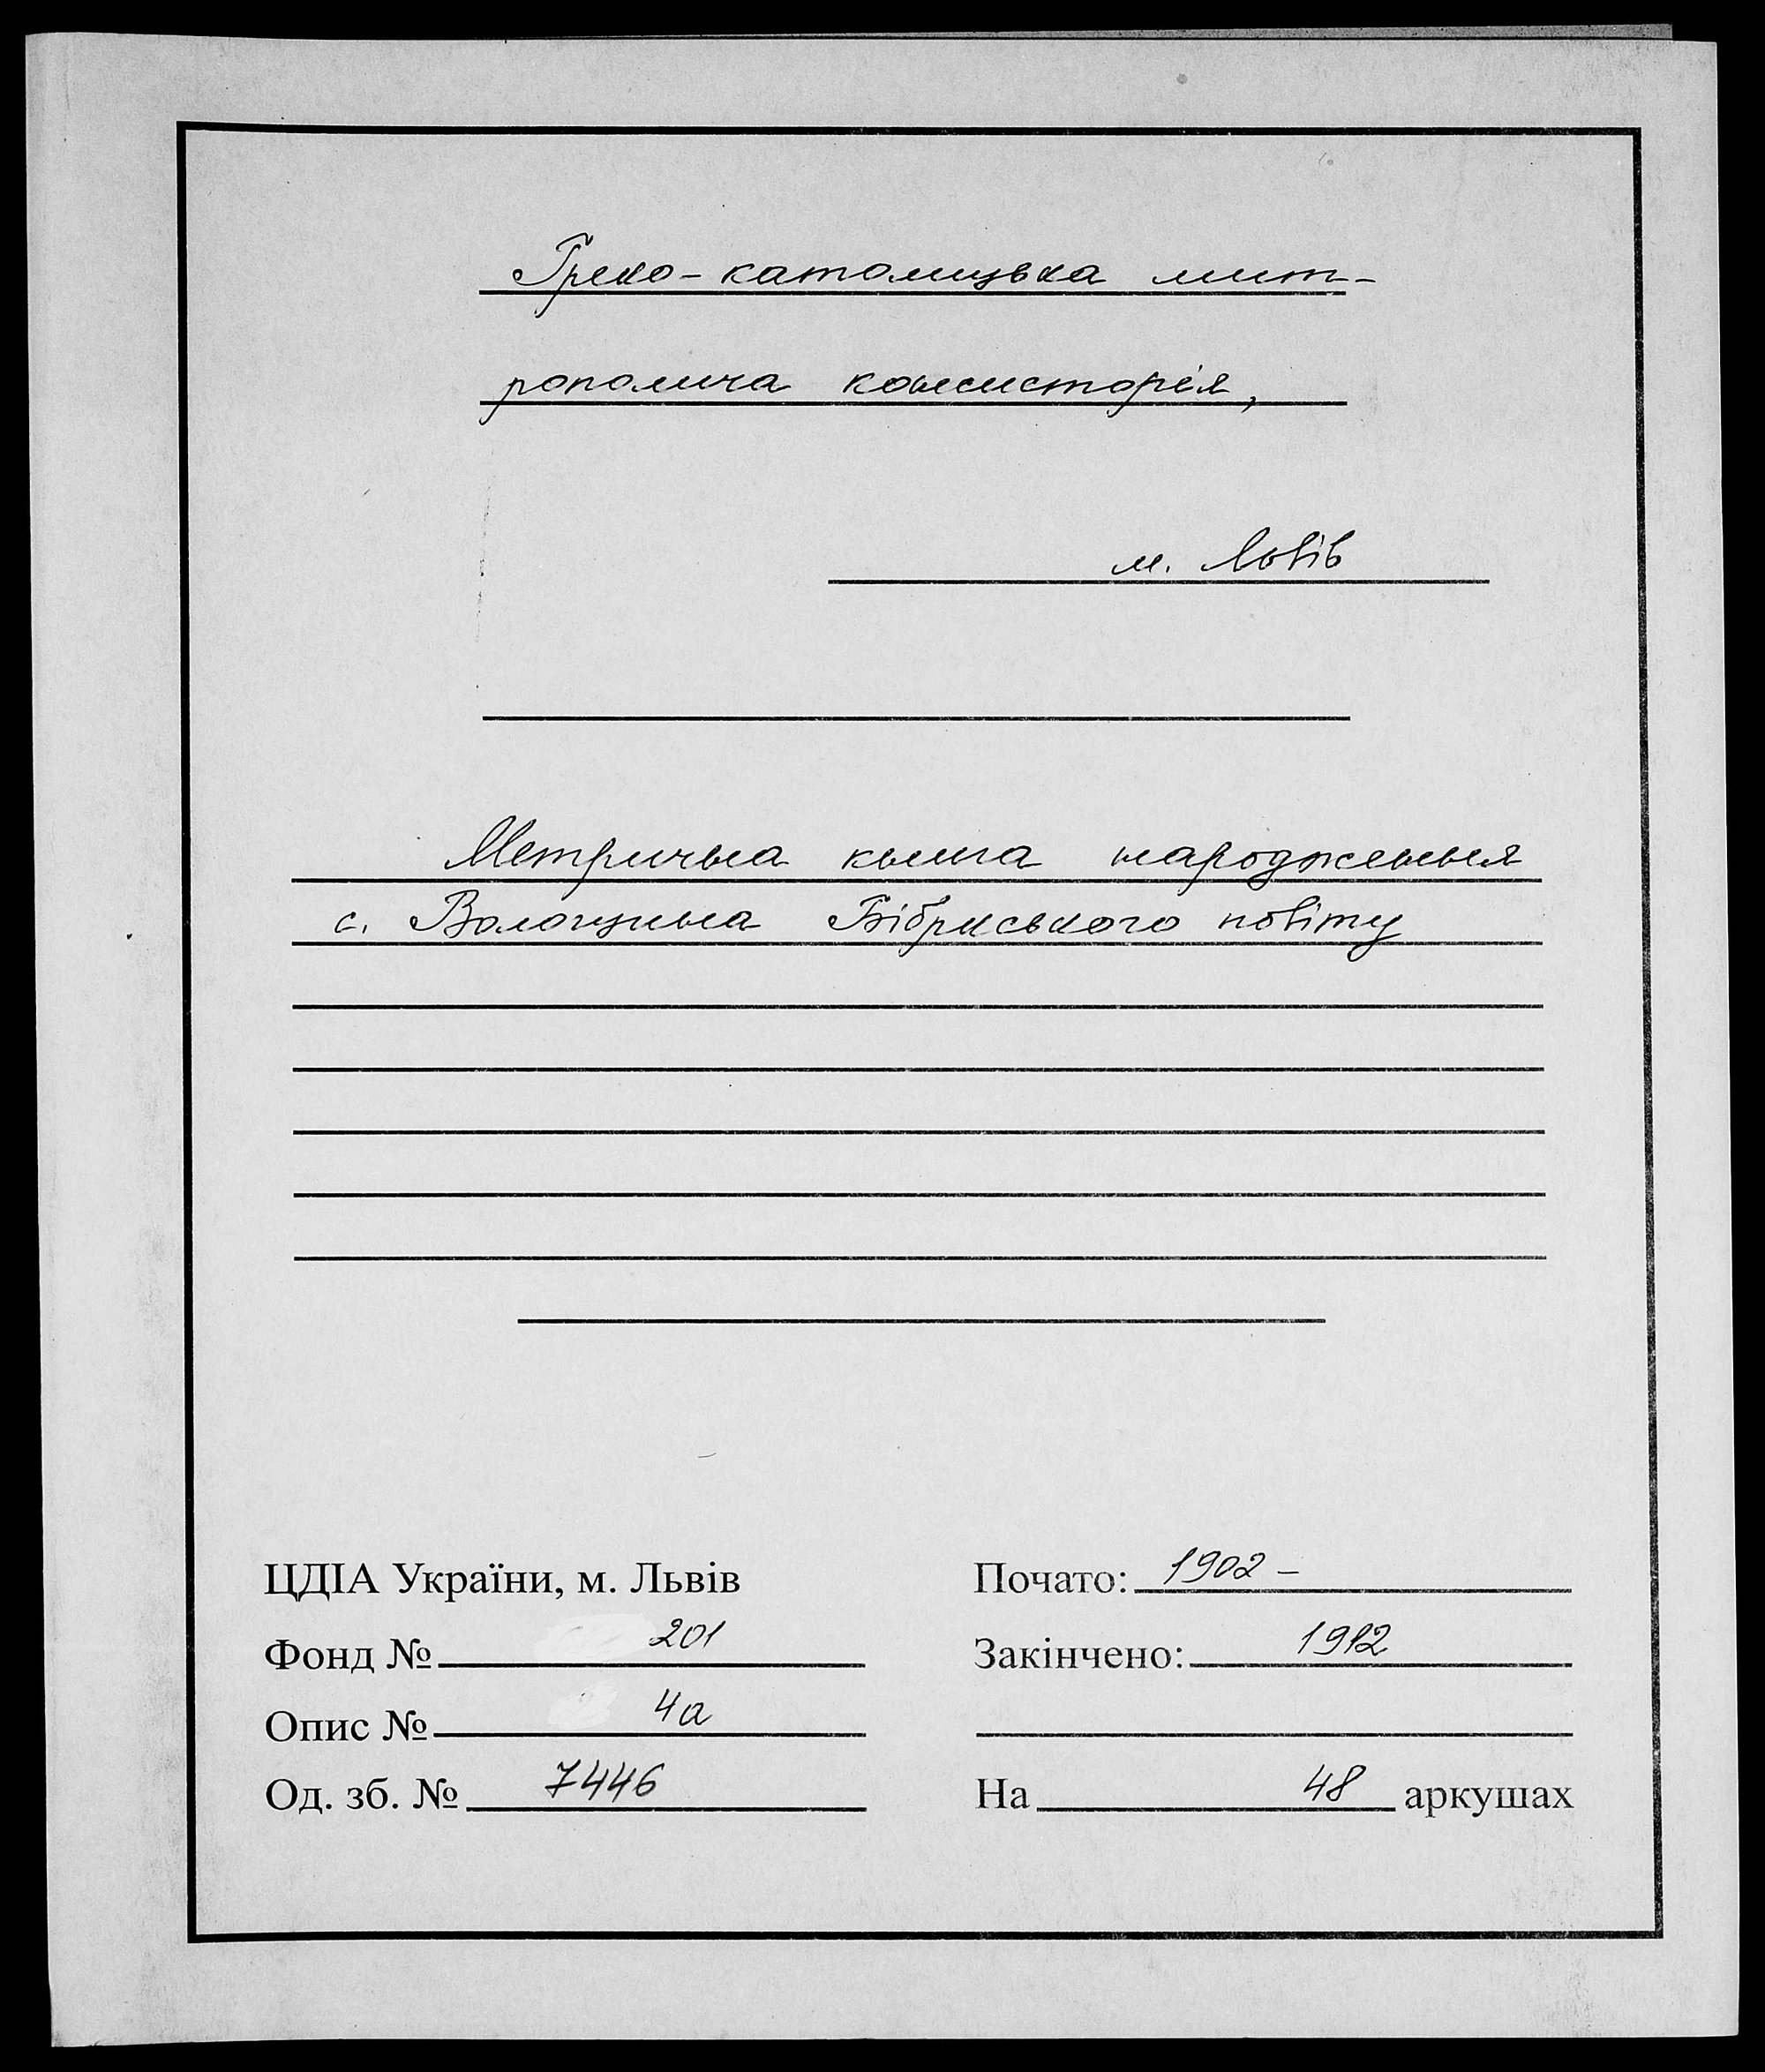 Греко-католицька мит-
рополича консисторія,
м. Львів
Метрична книга народження
с. Волощина Бібрського повіту
ЦДІА України, м. Львів
Почато: 1902 –
Фонд № 201
Закінчено: 1912
Опис № 4а
Од. зб. № 7446
На 48 аркушах